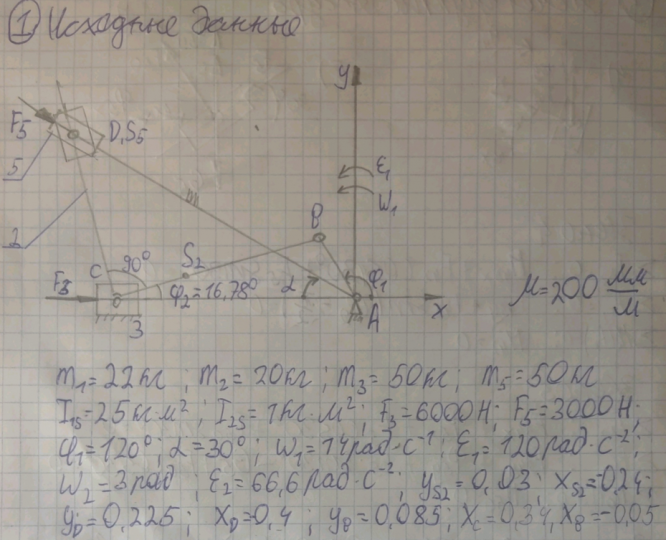 ① Исходные данные
y
F5
D,S5
ε1
W1
5
m
2
B
C 90° S2
F3
φ2=16,78°
α
φ1
μ=200 мм/м
3
A
x
m1=22кг ; m2=20кг ; m3=50кг ; m5=50кг
I1S=25кг·м² ; I2S=1кг·м² ; F3=6000Н ; F5=3000Н ;
φ1=120° ; α=30° ; W1=14рад·с⁻¹ ; ε1=120рад·с⁻² ;
W2=3рад ; ε2=66,6рад·с⁻² ; yS2=0,03 ; xS2=-0,24 ;
yD=0,225 ; xD=0,4 ; yB=0,085 ; xC=0,34, xB=-0,05